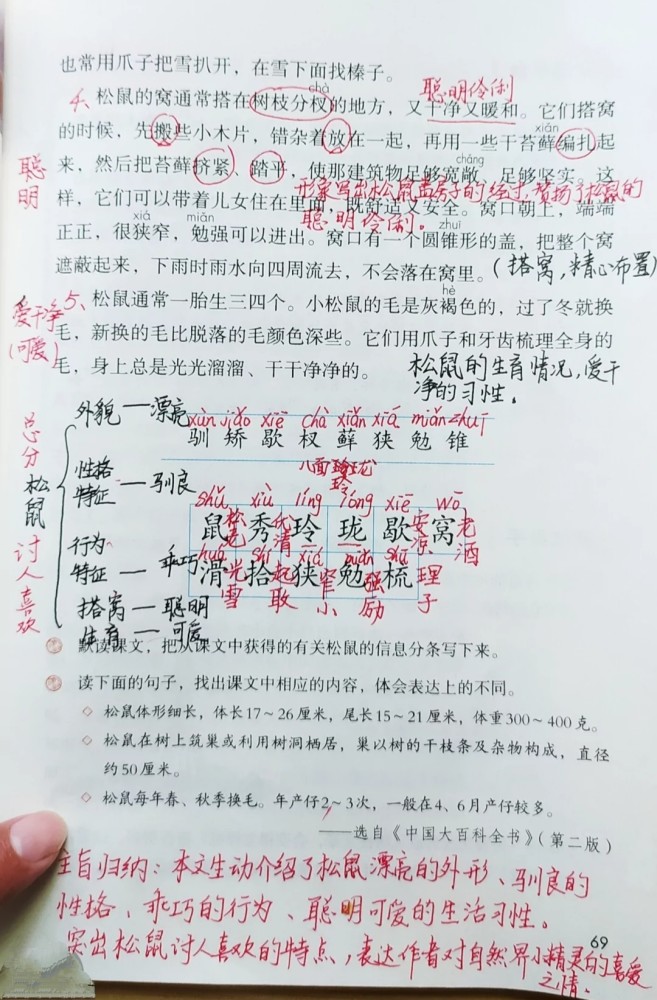 也常用爪子把雪扒开，在雪下面找榛子。
聪明伶俐
chà
4、松鼠的窝通常搭在树枝分杈的地方，又干净又暖和。它们搭窝
xiǎn
的时候，先搬些小木片，错杂着放在一起，再用一些干苔藓编扎起
聪明
chǎng
来，然后把苔藓挤紧、踏平，使那建筑物足够宽敞、足够坚实。这
形象写出松鼠盖房子的经过，赞扬了松鼠的
样，它们可以带着儿女住在里面，既舒适又安全。窝口朝上，端端
聪明伶俐。
xiá miǎn zhuī
正正，很狭窄，勉强可以进出。窝口有一个圆锥形的盖，把整个窝
遮蔽起来，下雨时雨水向四周流去，不会落在窝里。(搭窝，精心布置)
hè
5、松鼠通常一胎生三四个。小松鼠的毛是灰褐色的，过了冬就换
爱干净
(可爱)
毛，新换的毛比脱落的毛颜色深些。它们用爪子和牙齿梳理全身的
毛，身上总是光光溜溜、干干净净的。
松鼠的生育情况，爱干
净的习性。
总分
松鼠
讨人喜欢
外貌—漂亮
性格
特征—驯良
行为
特征—乖巧
搭窝—聪明
生育—可爱
xùn jiǎo xiē chà xiǎn xiá miǎn zhuī
驯 矫 歇 杈 藓 狭 勉 锥
八面玲珑
玲
shǔ xiù líng lóng xiē wō
鼠 秀 玲 珑 歇 窝
松 优清 安凉 老酒
huá shí xiá miǎn shū
滑 拾 狭 勉 梳
光雪 起取 窄小 强励 理子
默读课文，把从课文中获得的有关松鼠的信息分条写下来。
读下面的句子，找出课文中相应的内容，体会表达上的不同。
◇ 松鼠体形细长，体长17～26厘米，尾长15～21厘米，体重300～400克。
◇ 松鼠在树上筑巢或利用树洞栖居，巢以树的干枝条及杂物构成，直径
约50厘米。
◇ 松鼠每年春、秋季换毛。年产仔2～3次，一般在4、6月产仔较多。
——选自《中国大百科全书》（第二版）
主旨归纳：本文生动介绍了松鼠漂亮的外形、驯良的
性格、乖巧的行为、聪明可爱的生活习性。
突出松鼠讨人喜欢的特点，表达作者对自然界小精灵的喜爱
之情。
69